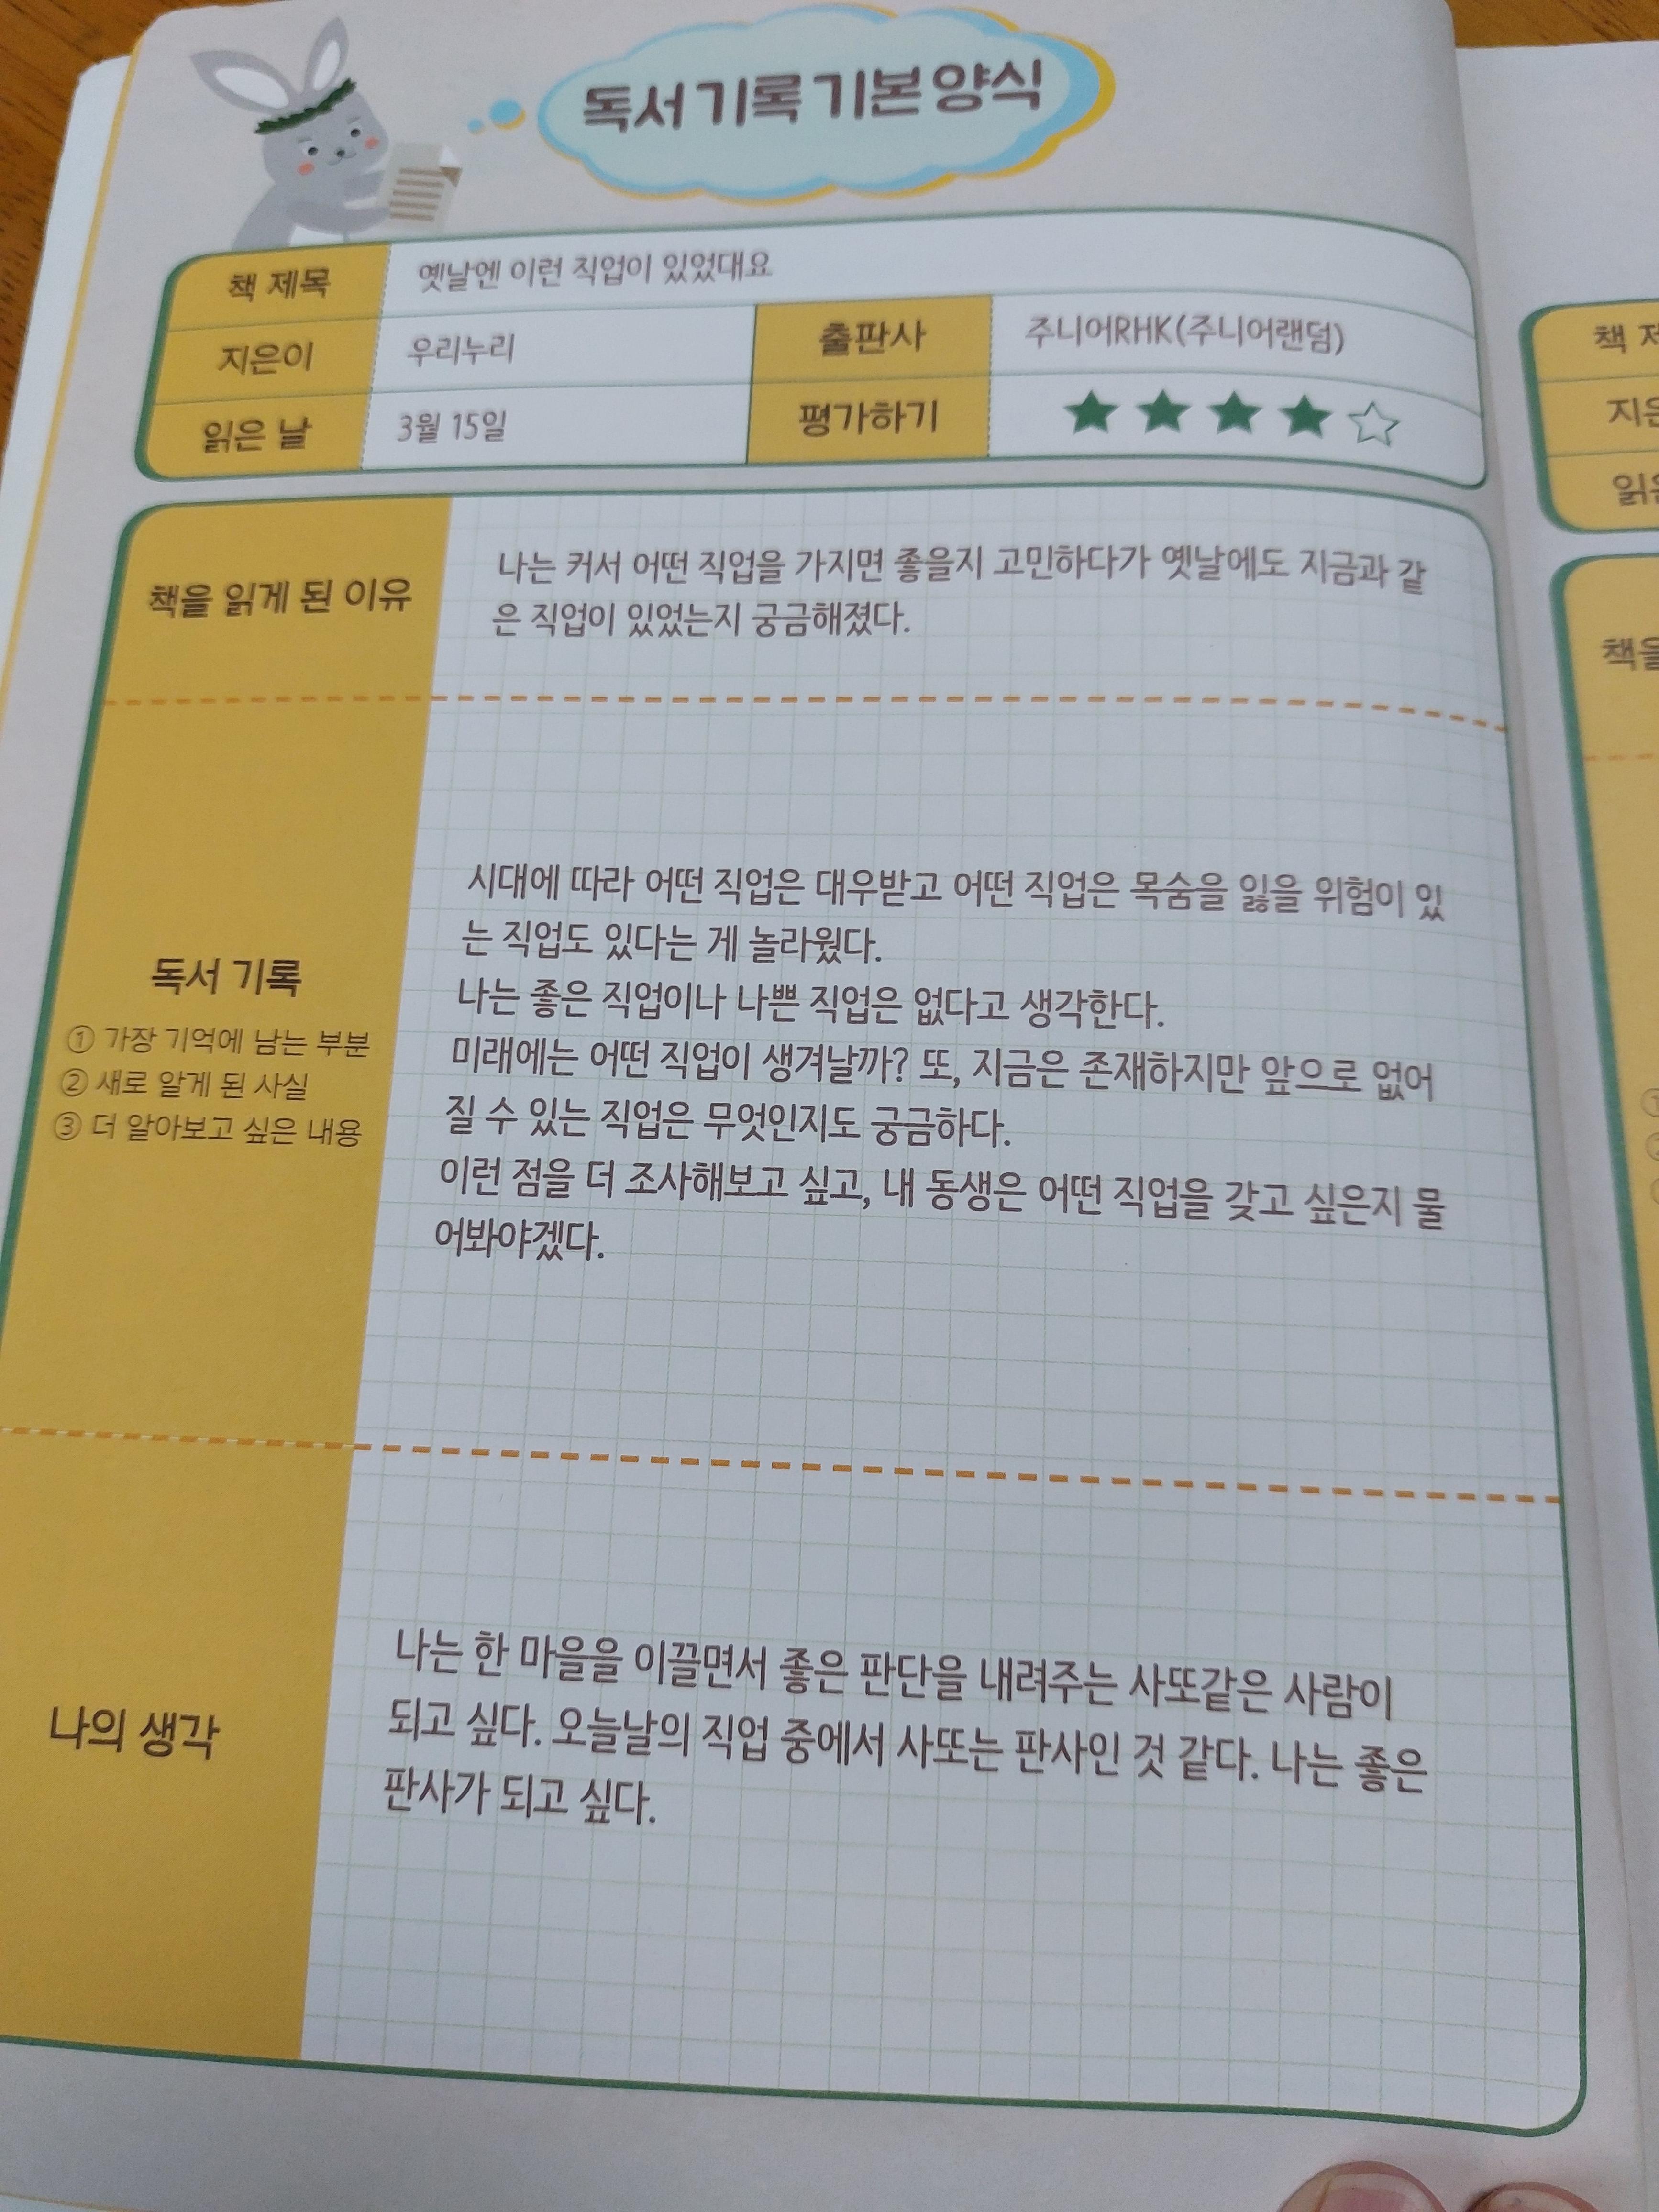 독서 기록 기본 양식
책 제목 옛날엔 이런 직업이 있었대요
지은이 우리누리 출판사 주니어RHK(주니어랜덤)
읽은 날 3월 15일 평가하기 ★★★★☆
책을 읽게 된 이유
나는 커서 어떤 직업을 가지면 좋을지 고민하다가 옛날에도 지금과 같
은 직업이 있었는지 궁금해졌다.
독서 기록
① 가장 기억에 남는 부분
② 새로 알게 된 사실
③ 더 알아보고 싶은 내용
시대에 따라 어떤 직업은 대우받고 어떤 직업은 목숨을 잃을 위험이 있
는 직업도 있다는 게 놀라웠다.
나는 좋은 직업이나 나쁜 직업은 없다고 생각한다.
미래에는 어떤 직업이 생겨날까? 또, 지금은 존재하지만 앞으로 없어
질 수 있는 직업은 무엇인지도 궁금하다.
이런 점을 더 조사해보고 싶고, 내 동생은 어떤 직업을 갖고 싶은지 물
어봐야겠다.
나의 생각
나는 한 마을을 이끌면서 좋은 판단을 내려주는 사또같은 사람이
되고 싶다. 오늘날의 직업 중에서 사또는 판사인 것 같다. 나는 좋은
판사가 되고 싶다.
책
지은
읽은
책을